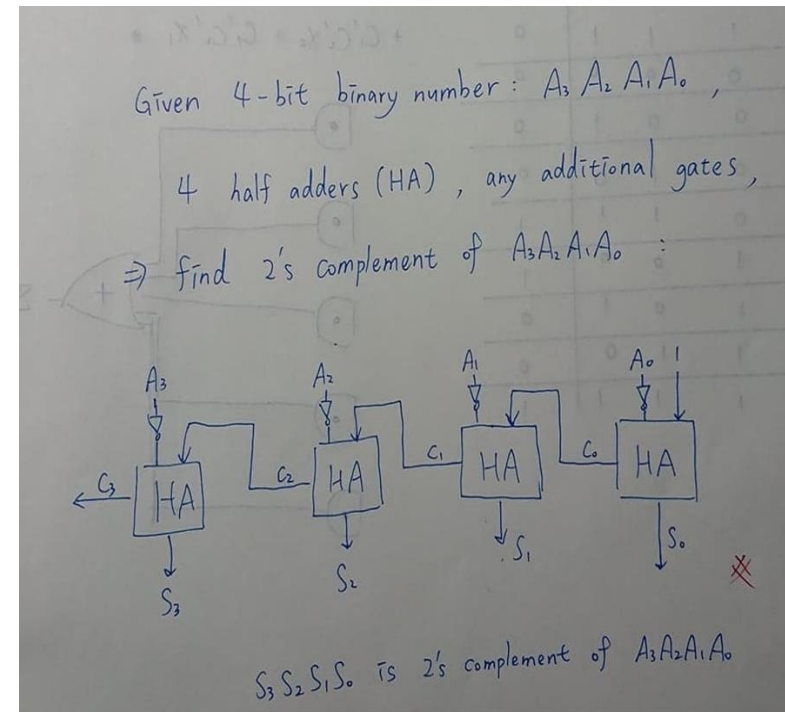 Given 4-bit binary number : A₃ A₂ A₁ A₀ ,
4 half adders (HA) , any additional gates ,
⇒ find 2's complement of A₃A₂A₁A₀ :
A₃ A₂ A₁ A₀ 1
C₃ HA C₂ HA C₁ HA C₀ HA
S₃ S₂ S₁ S₀
S₃ S₂ S₁ S₀ is 2's complement of A₃A₂A₁A₀